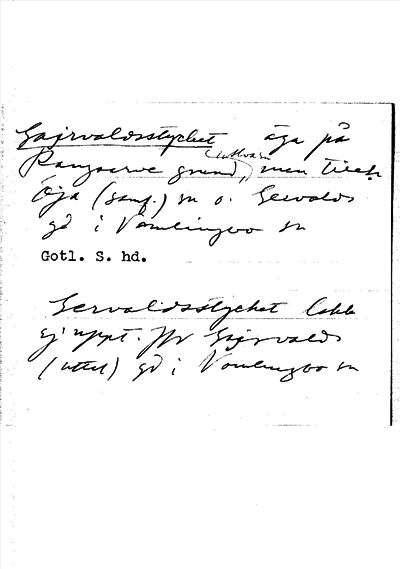 Gajrvaldsstycket äga på
Rangarve grund, men tillh.
Öja (samf.) sn o. Gervalds
gd i Vamlingbo sn
Gotl. S. hd.
Gervaldsstycket lokk
ej uppt. Jfr Gajrvalds
(uttal) gd i Vamlingbo sn